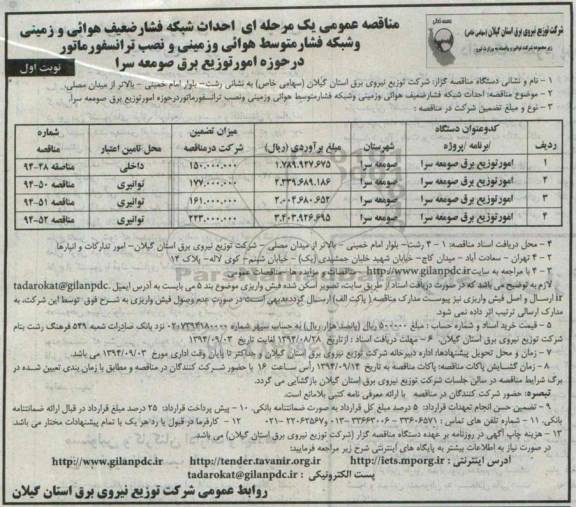 شرکت توزیع نیروی برق استان گیلان (سهامی خاص)
مناقصه عمومی یک مرحله ای احداث شبکه فشارضعیف هوائی و زمینی
وشبکه فشارمتوسط هوائی وزمینی و نصب ترانسفورماتور
درحوزه امورتوزیع برق صومعه سرا
نوبت اول
۱ - نام و نشانی دستگاه مناقصه گزار: شرکت توزیع نیروی برق استان گیلان (سهامی خاص) به نشانی رشت- بلوار امام خمینی - بالاتر از میدان مصلی.
۲ - موضوع مناقصه: احداث شبکه فشارضعیف هوائی وزمینی وشبکه فشارمتوسط هوائی وزمینی ونصب ترانسفورماتوردرحوزه امورتوزیع برق صومعه سرا.
۳ - نوع و مبلغ تضمین شرکت در مناقصه :
ردیف کدوعنوان دستگاه /برنامه /پروژه شهرستان مبلغ برآوردی (ریال) میزان تضمین شرکت درمناقصه محل تامین اعتبار شماره مناقصه
۱ امورتوزیع برق صومعه سرا صومعه سرا ۱.۷۸۹.۹۲۷.۶۷۵ ۱۵۰.۰۰۰.۰۰۰ داخلی مناصفه ۴۸-۹۴
۲ امورتوزیع برق صومعه سرا صومعه سرا ۲.۳۳۹.۶۸۹.۱۸۶ ۱۷۷.۰۰۰.۰۰۰ توانیری مناقصه ۵۰-۹۴
۳ امورتوزیع برق صومعه سرا صومعه سرا ۲.۰۰۲.۶۸۰.۶۵۲ ۱۶۱.۰۰۰.۰۰۰ توانیری مناقصه ۵۱-۹۴
۴ امورتوزیع برق صومعه سرا صومعه سرا ۳.۴۰۳.۹۲۶.۶۹۵ ۲۲۳.۰۰۰.۰۰۰ توانیری مناقصه ۵۲-۹۴
۴ - محل دریافت اسناد مناقصه: ۱ - ۴ رشت- بلوار امام خمینی - بالاتر از میدان مصلی - شرکت توزیع نیروی برق استان گیلان- امور تدارکات و انبارها
۲ - ۴ تهران - سعادت آباد - میدان کاج- خیابان شهید خلبان جمشیدی (یک) - خیابان شبنم- کوی لاله- پلاک ۱۴
۳ - ۴ با مراجعه به سایت http://www.gilanpdc.ir - مناقصات و مزایده ها - مناقصات عمومی
لازم به توضیح می باشد که در صورت دریافت اسناد از طریق سایت، تصویر اسکن شده فیش واریزی موضوع بند ۵ می بایست به آدرس ایمیل tadarokat@gilanpdc.
ir ارسال و اصل فیش واریزی نیز پیوست مدارک مناقصه ( پاکت الف) ارسال گردد.بدیهی است در صورت عدم وصول فیش واریزی به شرح فوق توسط این شرکت، به
مدارک ارسالی ترتیب اثر داده نمی شود.
۵ - قیمت خرید اسناد و شماره حساب : مبلغ ۵۰۰۰۰۰ ریال (پانصد هزار ریال) به حساب سپهر شماره ۰۲۰۷۳۹۴۱۸۰۰۰۰ نزد بانک صادرات شعبه ۵۴۹ فرهنگ رشت بنام
شرکت توزیع نیروی برق استان گیلان. ۶ - مهلت دریافت اسناد : ازتاریخ ۱۳۹۴/۰۸/۲۸ لغایت تاریخ ۱۳۹۴/۰۹/۰۳
۷ - زمان و محل تحویل پیشنهادها: اداره دبیرخانه شرکت توزیع نیروی برق استان گیلان و حداکثر تا پایان وقت اداری مورخ ۱۳۹۴/۰۹/۰۳ می باشد.
۸ - زمان گشایش پاکات مناقصه: پاکات مناقصه به تاریخ ۱۳۹۴/۰۹/۱۴ رأس ساعت ۱۶ با حضور شرکت کنندگان در مناقصه و مطابق با زمان بندی تعیین شده در
برگ شرایط مناقصه در سالن جلسات شرکت توزیع نیروی برق استان گیلان بازگشایی می گردد.
تبصره: حضور شرکت کنندگان در مناقصه با ارائه معرفی نامه کتبی بلامانع است.
۹ - تضمین حسن انجام تعهدات قرارداد: ۵ درصد مبلغ کل قرارداد به صورت ضمانتنامه بانکی. ۱۰ - پیش پرداخت قرارداد: ۲۵ درصد مبلغ قرارداد در قبال ارائه ضمانتنامه
بانکی. ۱۱ - شماره تلفن های تماس : ۳۳۳۰۶۵۷۱ - ۳۳۶۶۳۰۰۶-۰۱۳ ۲۲۰۶۲۵۶۷-۰۲۱ ۱۲ - کارفرما در قبول یا رد هر یک یا تمام پیشنهادات مختار می باشد.
۱۳ - هزینه چاپ آگهی در روزنامه بر عهده دستگاه مناقصه گزار (شرکت توزیع نیروی برق استان گیلان) می باشد.
در صورت نیاز به اطلاعات بیشتر به پایگاه های اینترنتی شرح زیر مراجعه فرمایید:
آدرس اینترنتی : http://iets.mporg.ir http://tender.tavanir.org.ir http://www.gilanpdc.ir
پست الکترونیکی : tadarokat@gilanpdc.ir
روابط عمومی شرکت توزیع نیروی برق استان گیلان